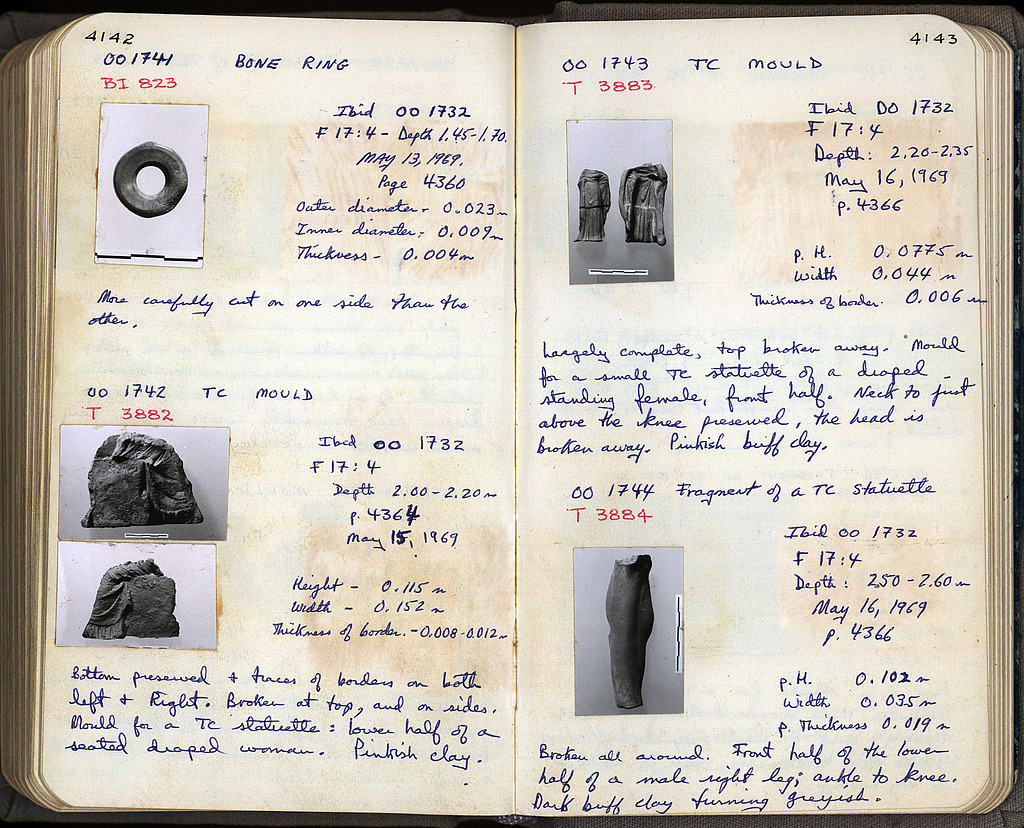 4142
OO 1741 BONE RING
BI 823
Ibid OO 1732
F 17:4 - Depth 1.45-1.70.
MAY 13, 1969.
Page 4360
Outer diameter - 0.023 m
Inner diameter: 0.009 m
Thickness - 0.004 m
More carefully cut on one side than the
other.
OO 1742 TC MOULD
T 3882
Ibid OO 1732
F 17:4
Depth 2.00-2.20 m
p. 4364
May 15, 1969
Height - 0.115 m
Width - 0.152 m
Thickness of border. - 0.008-0.012 m
Bottom preserved & traces of borders on both
left & Right. Broken at top, and on sides.
Mould for a TC statuette: lower half of a
seated draped woman. Pinkish clay.
4143
OO 1743 TC MOULD
T 3883
Ibid OO 1732
F 17:4
Depth: 2.20-2.35
May 16, 1969
p. 4366
p. H. 0.0775 m
Width 0.044 m
Thickness of border. 0.006 m
Largely complete, top broken away. Mould
for a small TC statuette of a draped -
standing female, front half. Neck to just
above the knee preserved, the head is
broken away. Pinkish buff clay.
OO 1744 Fragment of a TC Statuette
T 3884
Ibid OO 1732
F 17:4
Depth: 2.50-2.60 m
May 16, 1969
p. 4366
p. H. 0.102 m
Width 0.035 m
p. Thickness 0.019 m
Broken all around. Front half of the lower
half of a male right leg; ankle to knee.
Dark buff clay turning greyish.